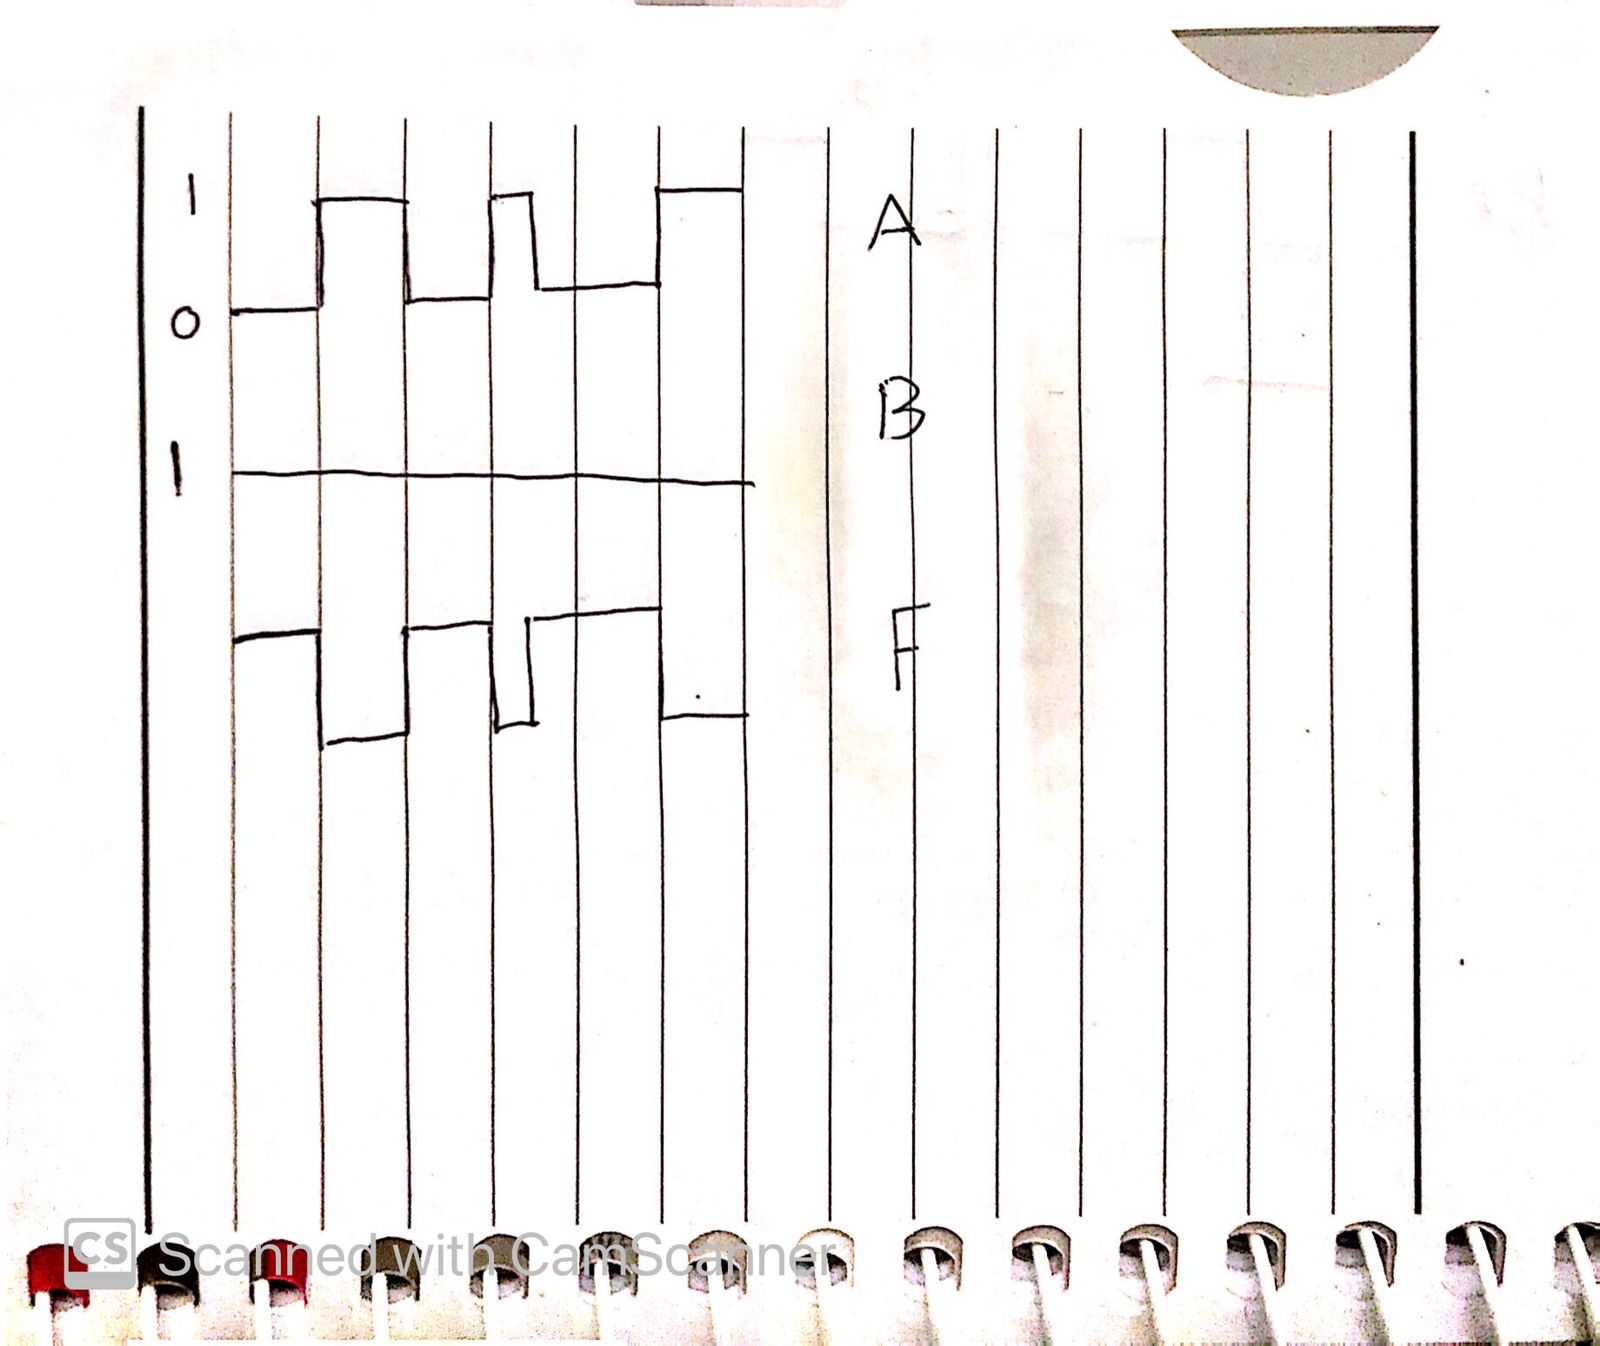 1
A
0
B
1
F
CS Scanned with CamScanner